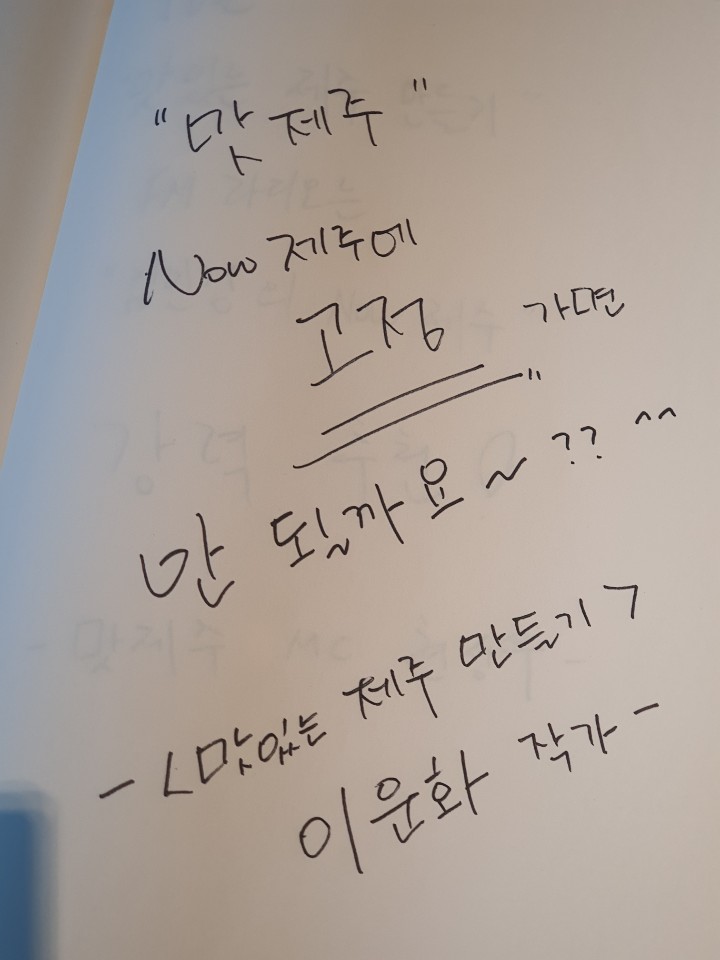 "맛제주"
Now 제주에
고정 가면
안 될까요~?? ^^
- <맛있는 제주 만들기>
이윤화 작가 -